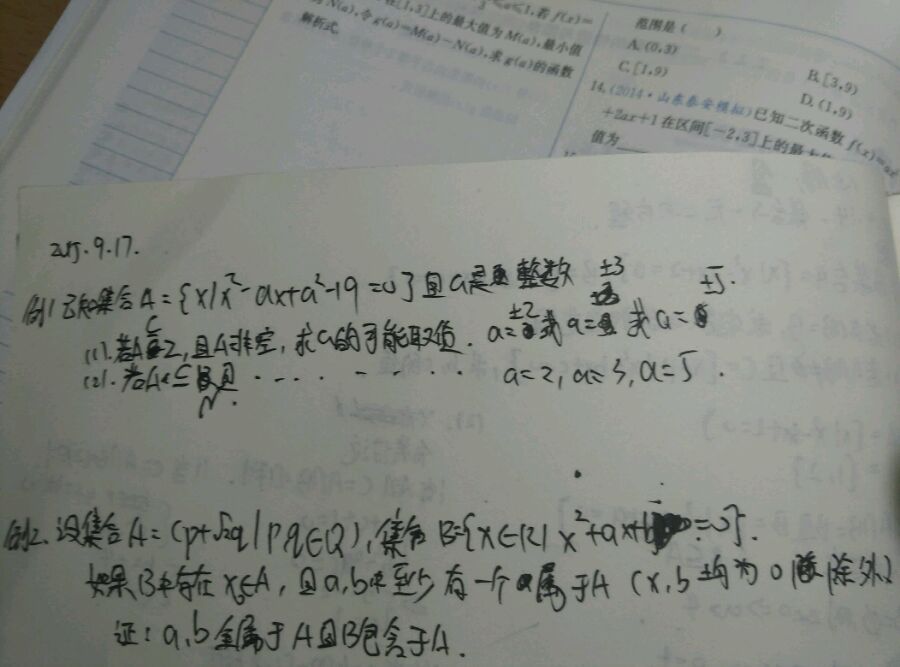 ≤a≤1,若f(x)=
[1,3]上的最大值为M(a),最小值
N(a),令g(a)=M(a)-N(a),求g(a)的函数
解析式.
范围是( )
A.(0,3)
B.[3,9)
C.[1,9)
D.(1,9)
14.(2014·山东泰安模拟)已知二次函数f(x)=ax²
+2ax+1在区间[-2,3]上的最大
值为
2015.9.17.
例1 已知集合A={x|x²-ax+a²-19=0}且a是整数
(1).若A⊆Z,且A非空,求a的可能取值. a=±2或a=±3或a=±5.
(2).若A⊆N且 ..... a=2,a=3,a=5.
例2.设集合A=(p+√2q|p q∈Q),集合B={x∈R|x²+ax+b=0}.
如果B中存在x₀∈A,且a,b中至少有一个属于A(x,b均为0除外)
证:a,b全属于A且B包含于A.